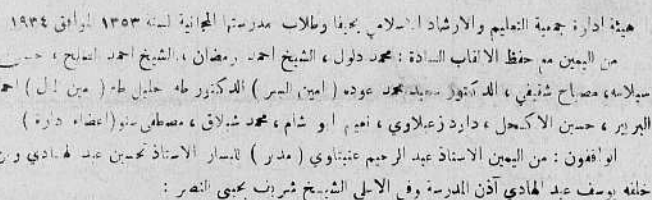 هيئة ادارة جمعية التعليم والارشاد الاسلامي بحيفا وطلاب مدرستها المجانية لسنة ١٣٥٣ الموافق ١٩٣٤
من اليمين مع حفظ الالقاب السادة : محمد دلول ، الشيخ احمد رمضان ، الشيخ احمد
سيلامه، مصباح شفيفي ، الدكتور سعيد محمد عوده ( امين السر ) الدكتور طه خليل طه ( مين المال ) احمد
البرير ، حسين الاكحل ، دارد زعبلاوي ، نعيم ابو شام ، محمد شبلاق ، مصطفى سنو ( اعضاء دارة )
الواقفون : من اليمين الاستاذ عبد الرحيم عنبتاوي ( مدير ) لليسار الاستاذ تحسين عبد الهادي
خلفه يوسف عبد الهادي آذن المدرسة وفي الاعلى الشيخ شريف يحيى النصر :